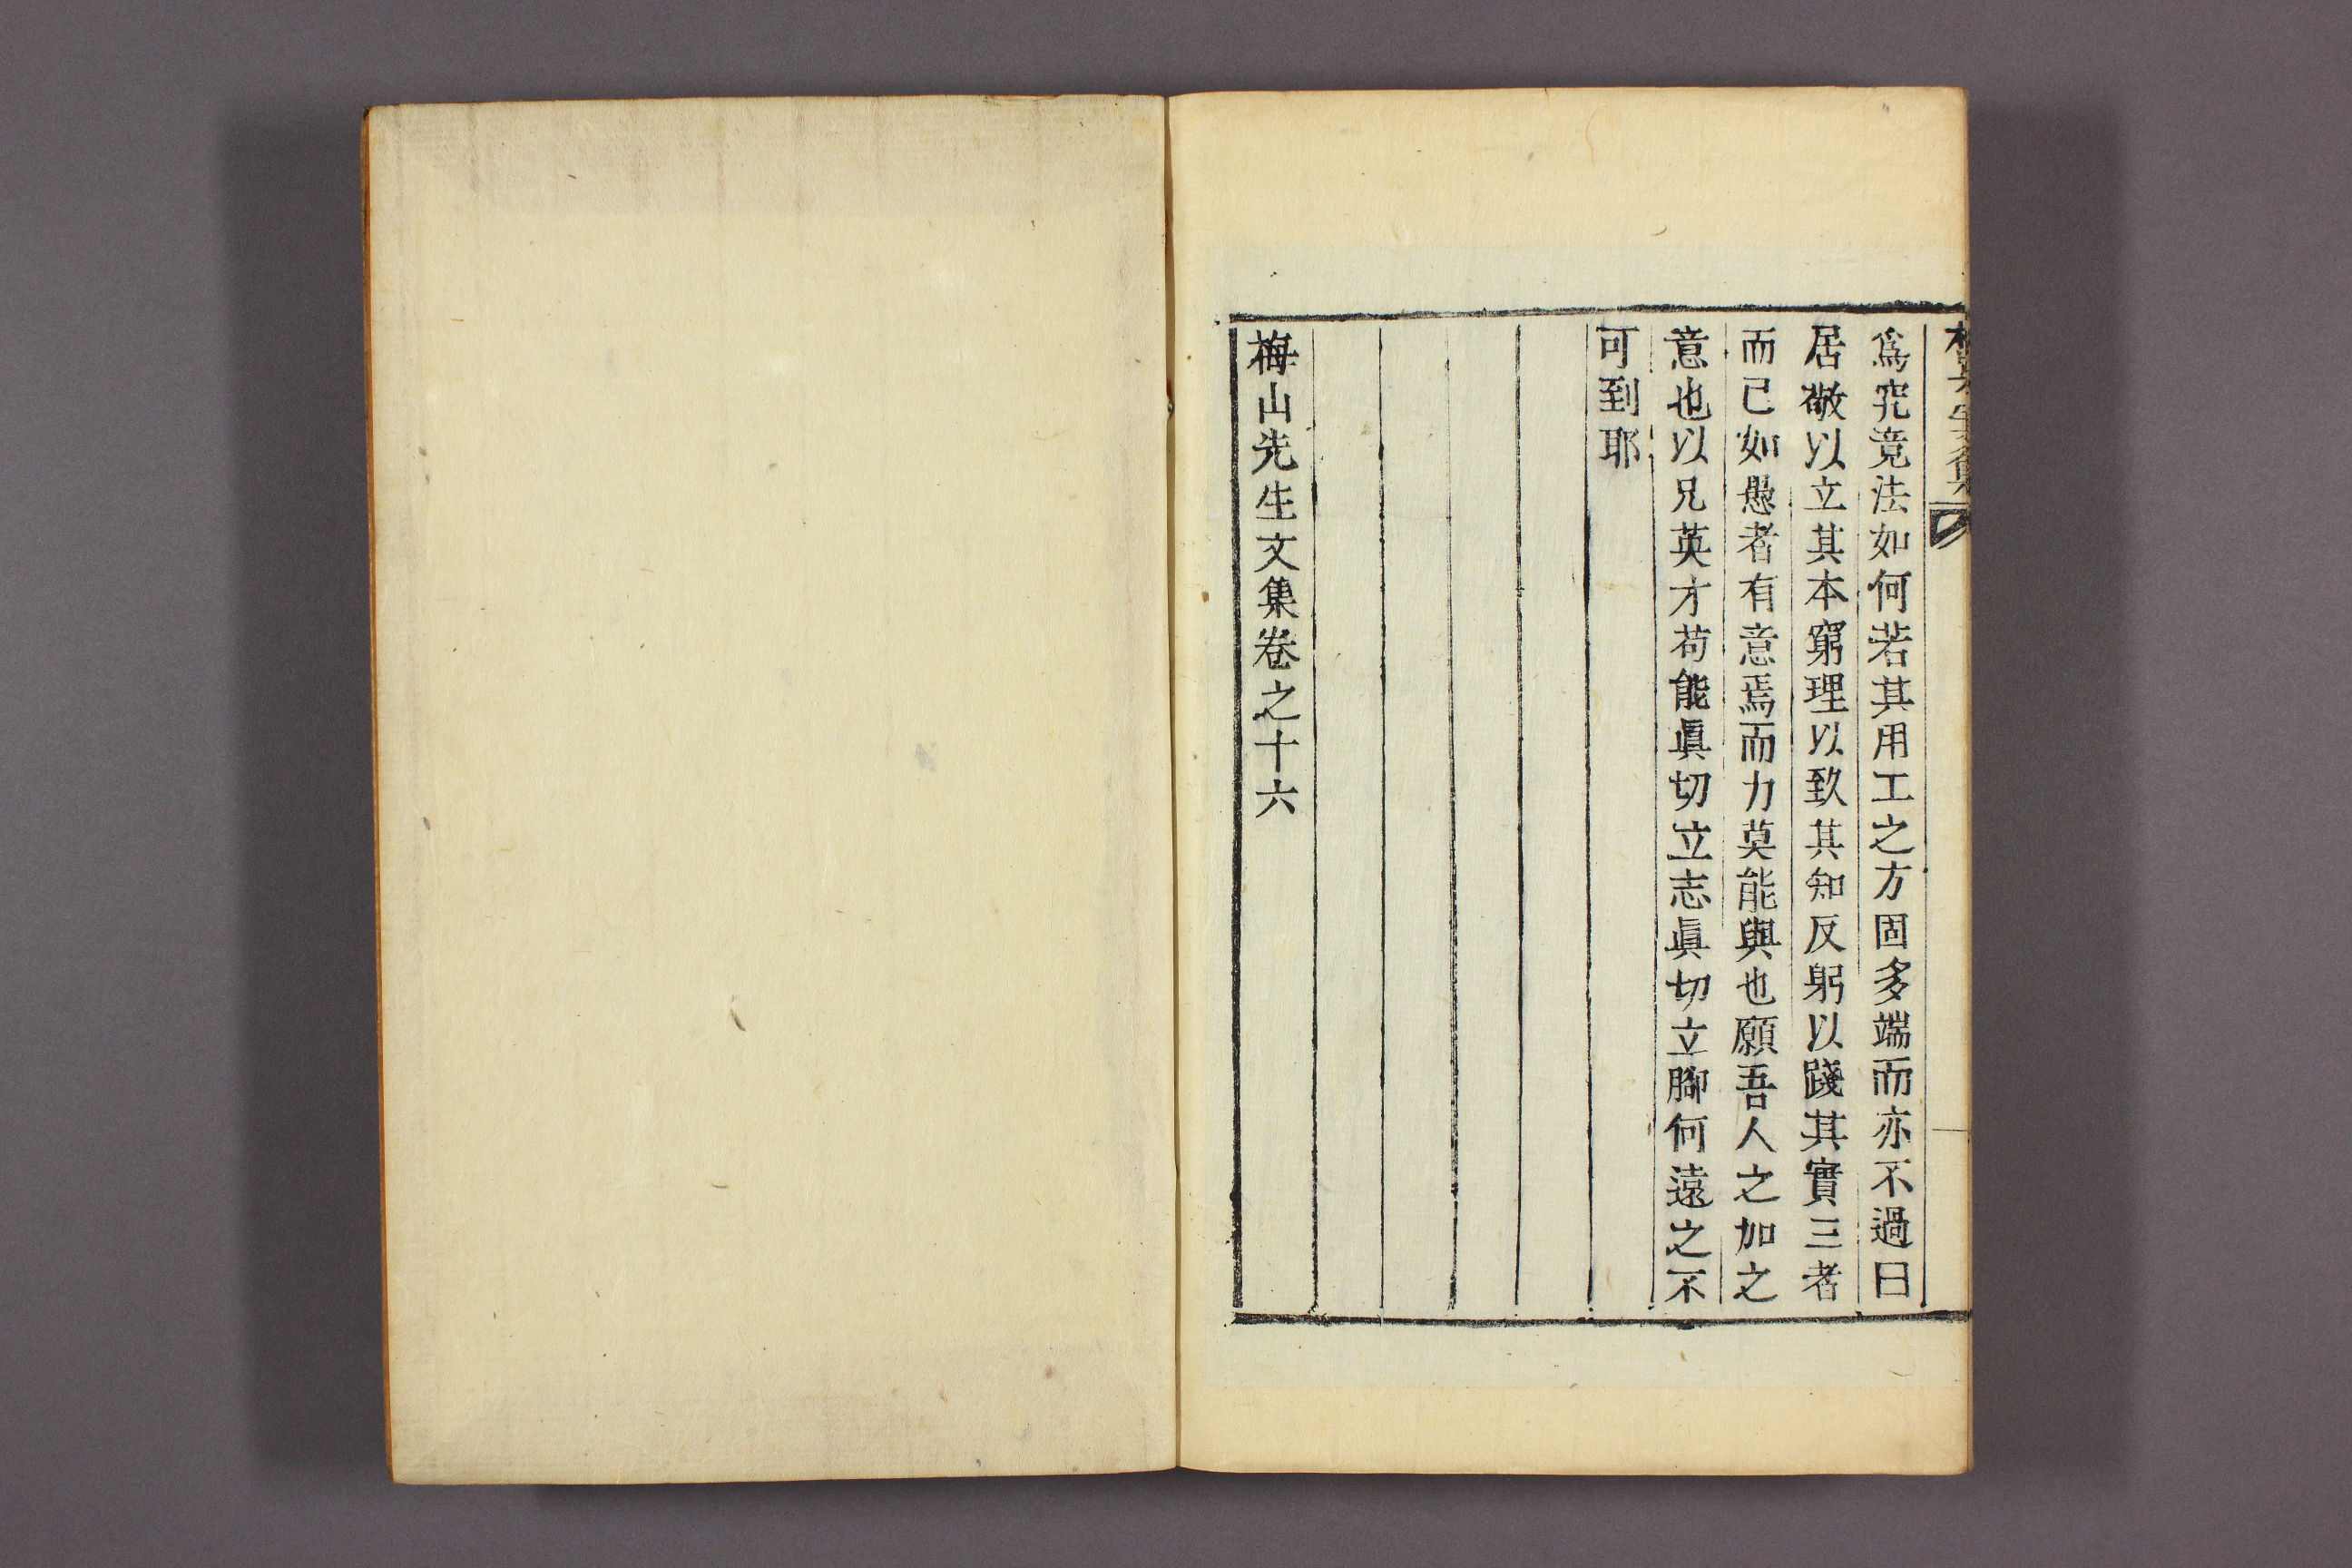 爲究竟法如何若其用工之方固多端而亦不過曰
居敬以立其本窮理以致其知反躬以踐其實三者
而已如愚者有意焉而力莫能與也願吾人之加之
意也以兄英才苟能眞切立志眞切立脚何遠之不
可到耶
梅山先生文集卷之十六